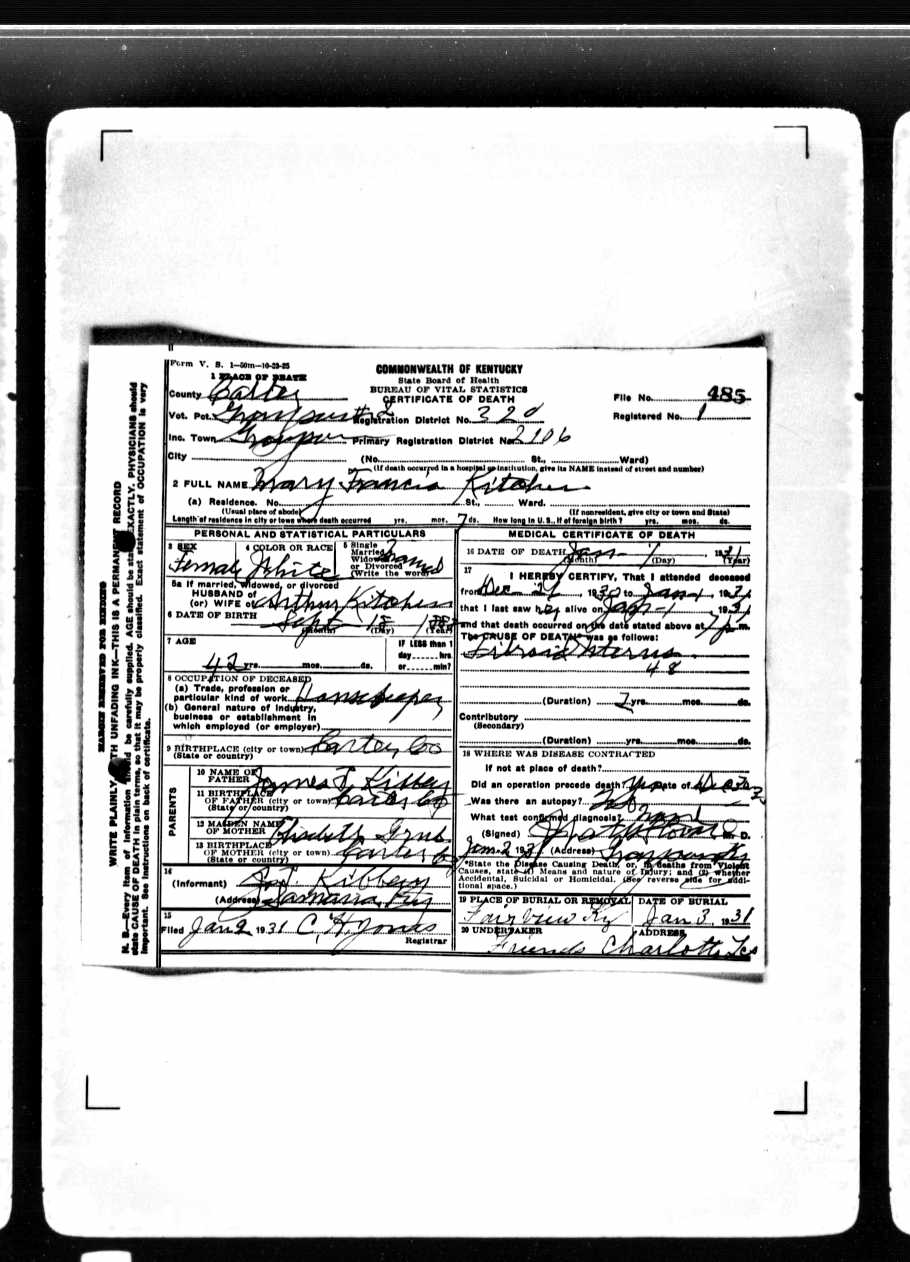 MARGIN RESERVED FOR BINDING
WRITE PLAINLY WITH UNFADING INK—THIS IS A PERMANENT RECORD
N. B.—Every item of information should be carefully supplied. AGE should be stated EXACTLY. PHYSICIANS should
state CAUSE OF DEATH in plain terms, so that it may be properly classified. Exact statement of OCCUPATION is very
important. See instructions on back of certificate.
Form V. S. 1—50m—10-23-25
COMMONWEALTH OF KENTUCKY
State Board of Health
BUREAU OF VITAL STATISTICS
CERTIFICATE OF DEATH
1 PLACE OF DEATH
County Carter
File No. 485
Vot. Pct. Registration District No. 320
Registered No. 1
Inc. Town Primary Registration District No. 2106
City (No. St., Ward)
(If death occurred in a hospital or institution, give its NAME instead of street and number)
2 FULL NAME Mary Francis Kitchen
(a) Residence. No. St., Ward.
(Usual place of abode) (If nonresident, give city or town and State)
Length of residence in city or town where death occurred yrs. mos. 7 ds. How long in U. S., if of foreign birth? yrs. mos. ds.
PERSONAL AND STATISTICAL PARTICULARS
3 SEX 4 COLOR OR RACE 5 Single Married Widowed or Divorced (Write the word)
Female White
5a If married, widowed, or divorced
HUSBAND of
(or) WIFE of Arthur Kitchen
6 DATE OF BIRTH Sept 18
(Month) (Day) (Year)
7 AGE IF LESS than 1
day hrs.
42 yrs. mos. ds. or min?
8 OCCUPATION OF DECEASED
(a) Trade, profession or
particular kind of work Housekeeper
(b) General nature of industry,
business or establishment in
which employed (or employer)
9 BIRTHPLACE (city or town) Carter Co
(State or country)
PARENTS
10 NAME OF
FATHER James T Kibbey
11 BIRTHPLACE
OF FATHER (city or town) Carter Co
(State or country)
12 MAIDEN NAME
OF MOTHER
13 BIRTHPLACE
OF MOTHER (city or town) Carter Co
(State or country)
14
(Informant) Kibbey
(Address)
15
Filed Jan 2, 1931 C. H. Jones
Registrar
MEDICAL CERTIFICATE OF DEATH
16 DATE OF DEATH Jan 1, 1931
(Month) (Day) (Year)
17
I HEREBY CERTIFY, That I attended deceased
from Dec 24, 1930 to Jan 1, 1931
that I last saw her alive on Jan 1, 1931
and that death occurred on the date stated above at 7 p.m.
The CAUSE OF DEATH* was as follows:
Fibroid Uterus
48
(Duration) 2 yrs. mos. ds.
Contributory
(Secondary)
(Duration) yrs. mos. ds.
18 WHERE WAS DISEASE CONTRACTED
If not at place of death?
Did an operation precede death? yes Date of Dec
Was there an autopsy? No
What test confirmed diagnosis?
(Signed) M. D.
Jan 2 1931 (Address)
*State the Disease Causing Death, or, in deaths from Violent
Causes, state (1) Means and nature of Injury; and (2) whether
Accidental, Suicidal or Homicidal. (See reverse side for addi-
tional space.)
19 PLACE OF BURIAL OR REMOVAL DATE OF BURIAL
Fairview Ky Jan 3, 1931
20 UNDERTAKER ADDRESS
Friends Charlotte